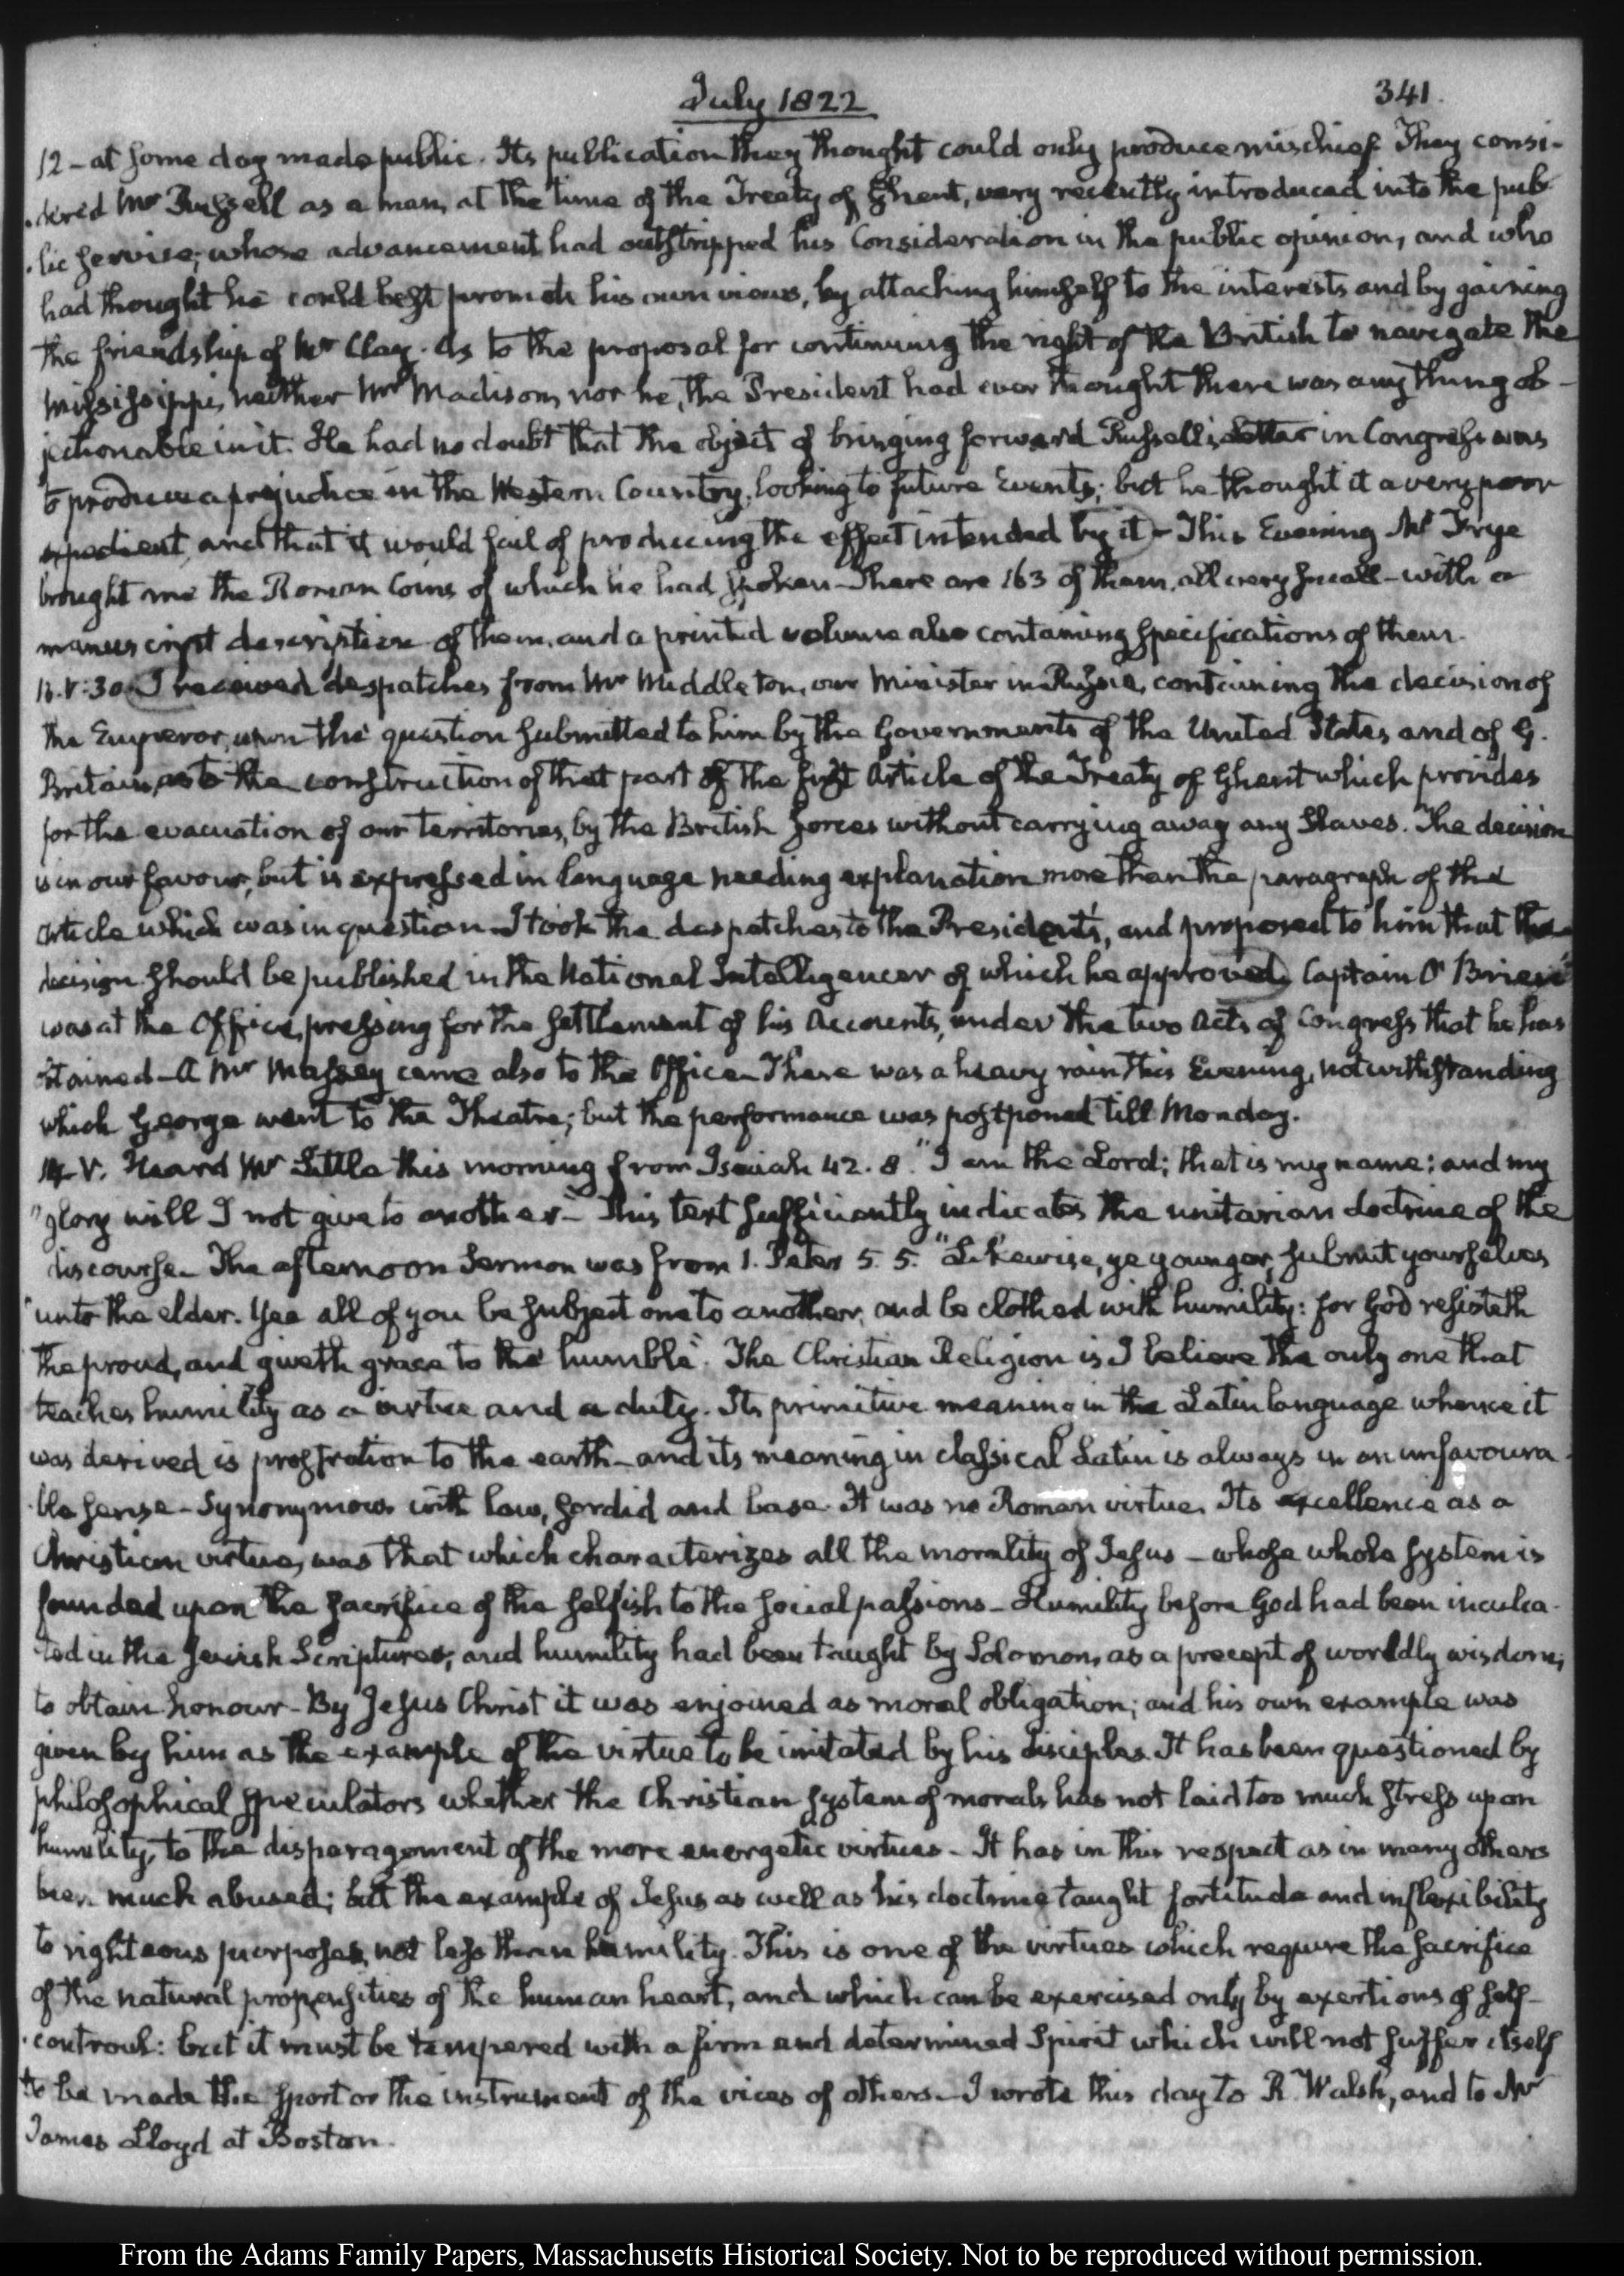 July 1822
341.
12 - at some day made public. Its publication they thought could only produce mischief. They consi-
dered Mr Russell as a man, at the time of the Treaty of Ghent, very recently introduced into the pub-
lic service; whose advancement had outstripped his Consideration in the public opinion, and who
had thought he could best promote his own views, by attaching himself to the interests and by gaining
the friendship of Mr Clay. As to the proposal for continuing the right of the British to navigate the
Mississippi, neither Mr Madison, nor he, the President had ever thought there was any thing ob-
jectionable in it. He had no doubt that the object of bringing forward Russell's letter in Congress was
to produce a prejudice in the Western Country, looking to future Events; but he thought it a very poor
expedient, and that it would fail of producing the effect intended by it - This Evening Mr Frye
brought me the Roman Coins of which he had spoken - There are 163 of them, all very small - with a
manuscript description of them, and a printed volume also containing specifications of them.
13. V:30. I received despatches from Mr Middleton, our Minister in Russia, containing the decision of
the Emperor, upon the question submitted to him by the Governments of the United States and of G.
Britain, as to the construction of that part of the first Article of the Treaty of Ghent which provides
for the evacuation of our territories, by the British forces without carrying away any Slaves. The decision
is in our favour, but is expressed in language needing explanation more than the paragraph of the
Article which was in question - I took the despatches to the President's, and proposed to him that the
decision should be published in the National Intelligencer of which he approved. Captain O'Brien
was at the Office, pressing for the settlement of his Accounts, under the two Acts of Congress that he has
obtained - A Mr Massey came also to the Office - There was a heavy rain this Evening, notwithstanding
which George went to the Theatre; but the performance was postponed till Monday.
14. V. Heard Mr Little this morning from Isaiah 42. 8. "I am the Lord; that is my name: and my
"glory will I not give to another" - This text sufficiently indicates the unitarian doctrine of the
discourse - The afternoon Sermon was from 1. Peter 5. 5. "Likewise, ye younger, submit yourselves
"unto the elder. Yea all of you be subject one to another, and be clothed with humility: for God resisteth
"the proud, and giveth grace to the humble". The Christian Religion is I believe the only one that
teaches humility as a virtue and a duty. Its primitive meaning in the Latin language whence it
was derived is prostration to the earth - and its meaning in classical Latin is always in an unfavoura-
ble sense - Synonymous with low, sordid and base. It was no Roman virtue. Its excellence as a
Christian virtue, was that which characterizes all the morality of Jesus - whose whole system is
founded upon the sacrifice of the selfish to the social passions - Humility before God had been inculca-
ted in the Jewish Scriptures, and humility had been taught by Solomon, as a precept of worldly wisdom;
to obtain honour - By Jesus Christ it was enjoined as moral obligation; and his own example was
given by him as the example of the virtue to be imitated by his disciples. It has been questioned by
philosophical speculators whether the Christian system of morals has not laid too much stress upon
humility, to the disparagement of the more energetic virtues - It has in this respect as in many others
been much abused; but the example of Jesus as well as his doctrine taught fortitude and inflexibility
to righteous purposes, not less than humility. This is one of the virtues which require the sacrifice
of the natural propensities of the human heart, and which can be exercised only by exertions of self-
controul: but it must be tempered with a firm and determined Spirit which will not suffer itself
to be made the sport or the instrument of the vices of others - I wrote this day to R. Walsh, and to Mr
James Lloyd at Boston.
From the Adams Family Papers, Massachusetts Historical Society. Not to be reproduced without permission.